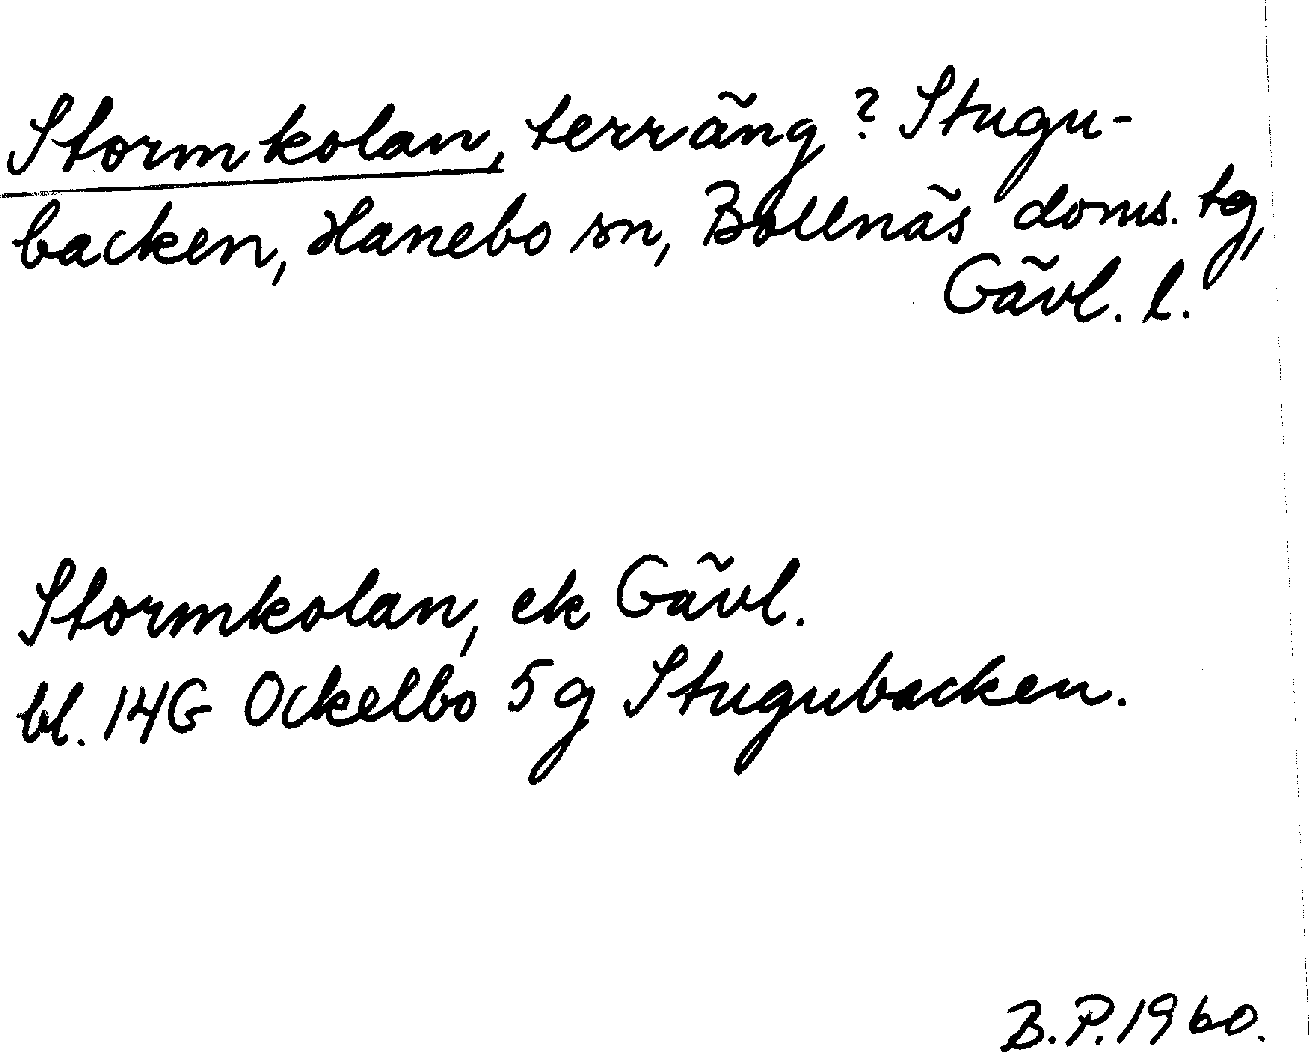 Stormkolan, terräng? Stugu-
backen, Hanebo sn, Bollnäs doms. tg,
Gävl. l.
Stormkolan, ek Gävl.
bl. 14G Ockelbo 5g Stugubacken.
B.P. 1960.